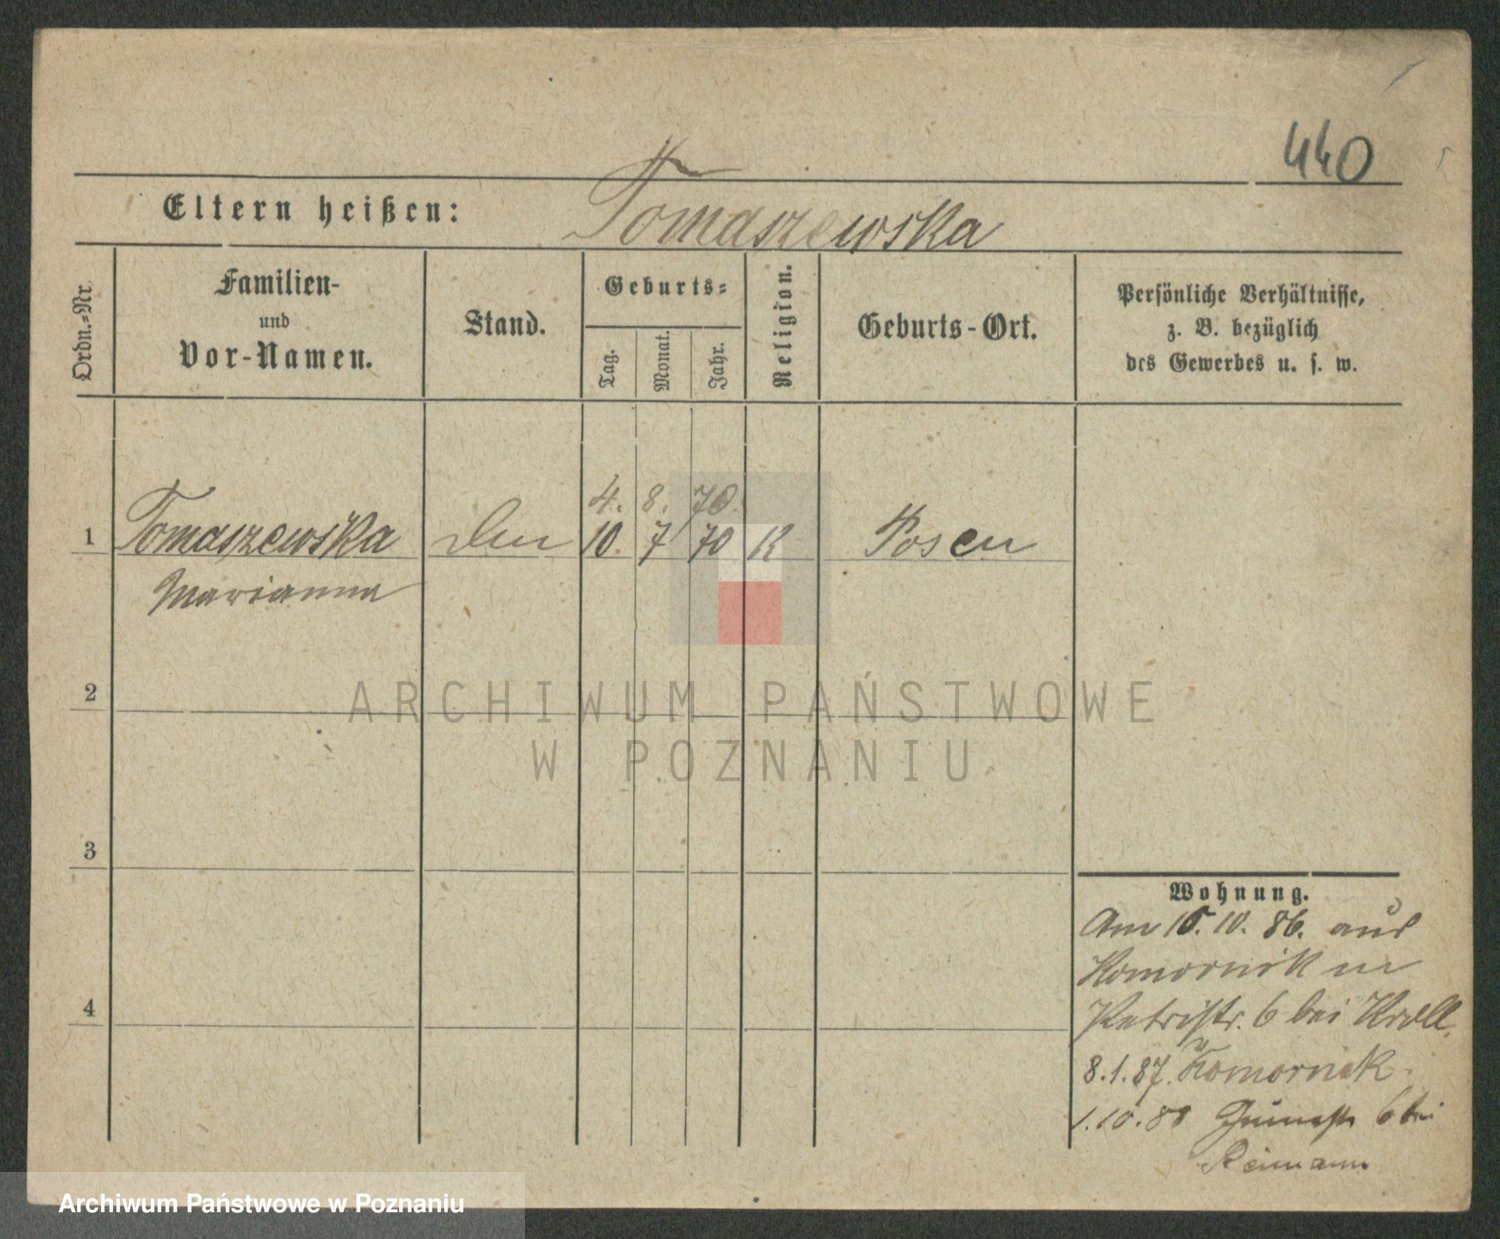 440
Eltern heißen: Tomaszewska
Ordn.-Nr.
Familien-
und
Vor-Namen.
Stand.
Geburts-
Tag.
Monat.
Jahr.
Religion.
Geburts-Ort.
Persönliche Verhältnisse,
z. B. bezüglich
des Gewerbes u. s. w.
4. 8. 70.
1 Tomaszewska 10. 7 70 K Posen
Marianna
2
ARCHIWUM PAŃSTWOWE
W POZNANIU
3
Wohnung.
Am 15.10. 86. aus
Komornik in
Petristr. 6 bei Kroll.
8.1.87. n Komornik.
1.10.88 6 bei
Reimann
4
Archiwum Państwowe w Poznaniu